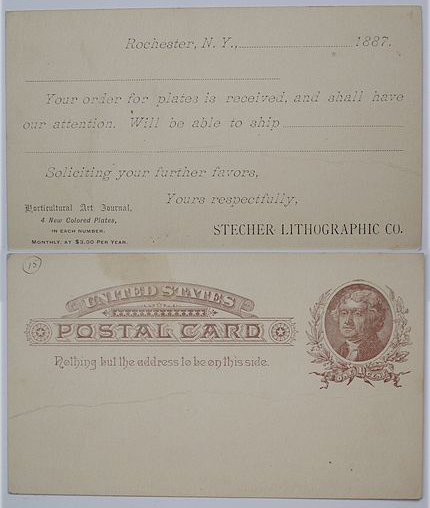 Rochester, N. Y., 1887.
Your order for plates is received, and shall have
our attention. Will be able to ship
Soliciting your further favors,
Yours respectfully,
Horticultural Art Journal,
4 New Colored Plates,
IN EACH NUMBER.
MONTHLY, AT $3.00 PER YEAR.
STECHER LITHOGRAPHIC CO.
13
UNITED STATES
POSTAL CARD
Nothing but the address to be on this side.